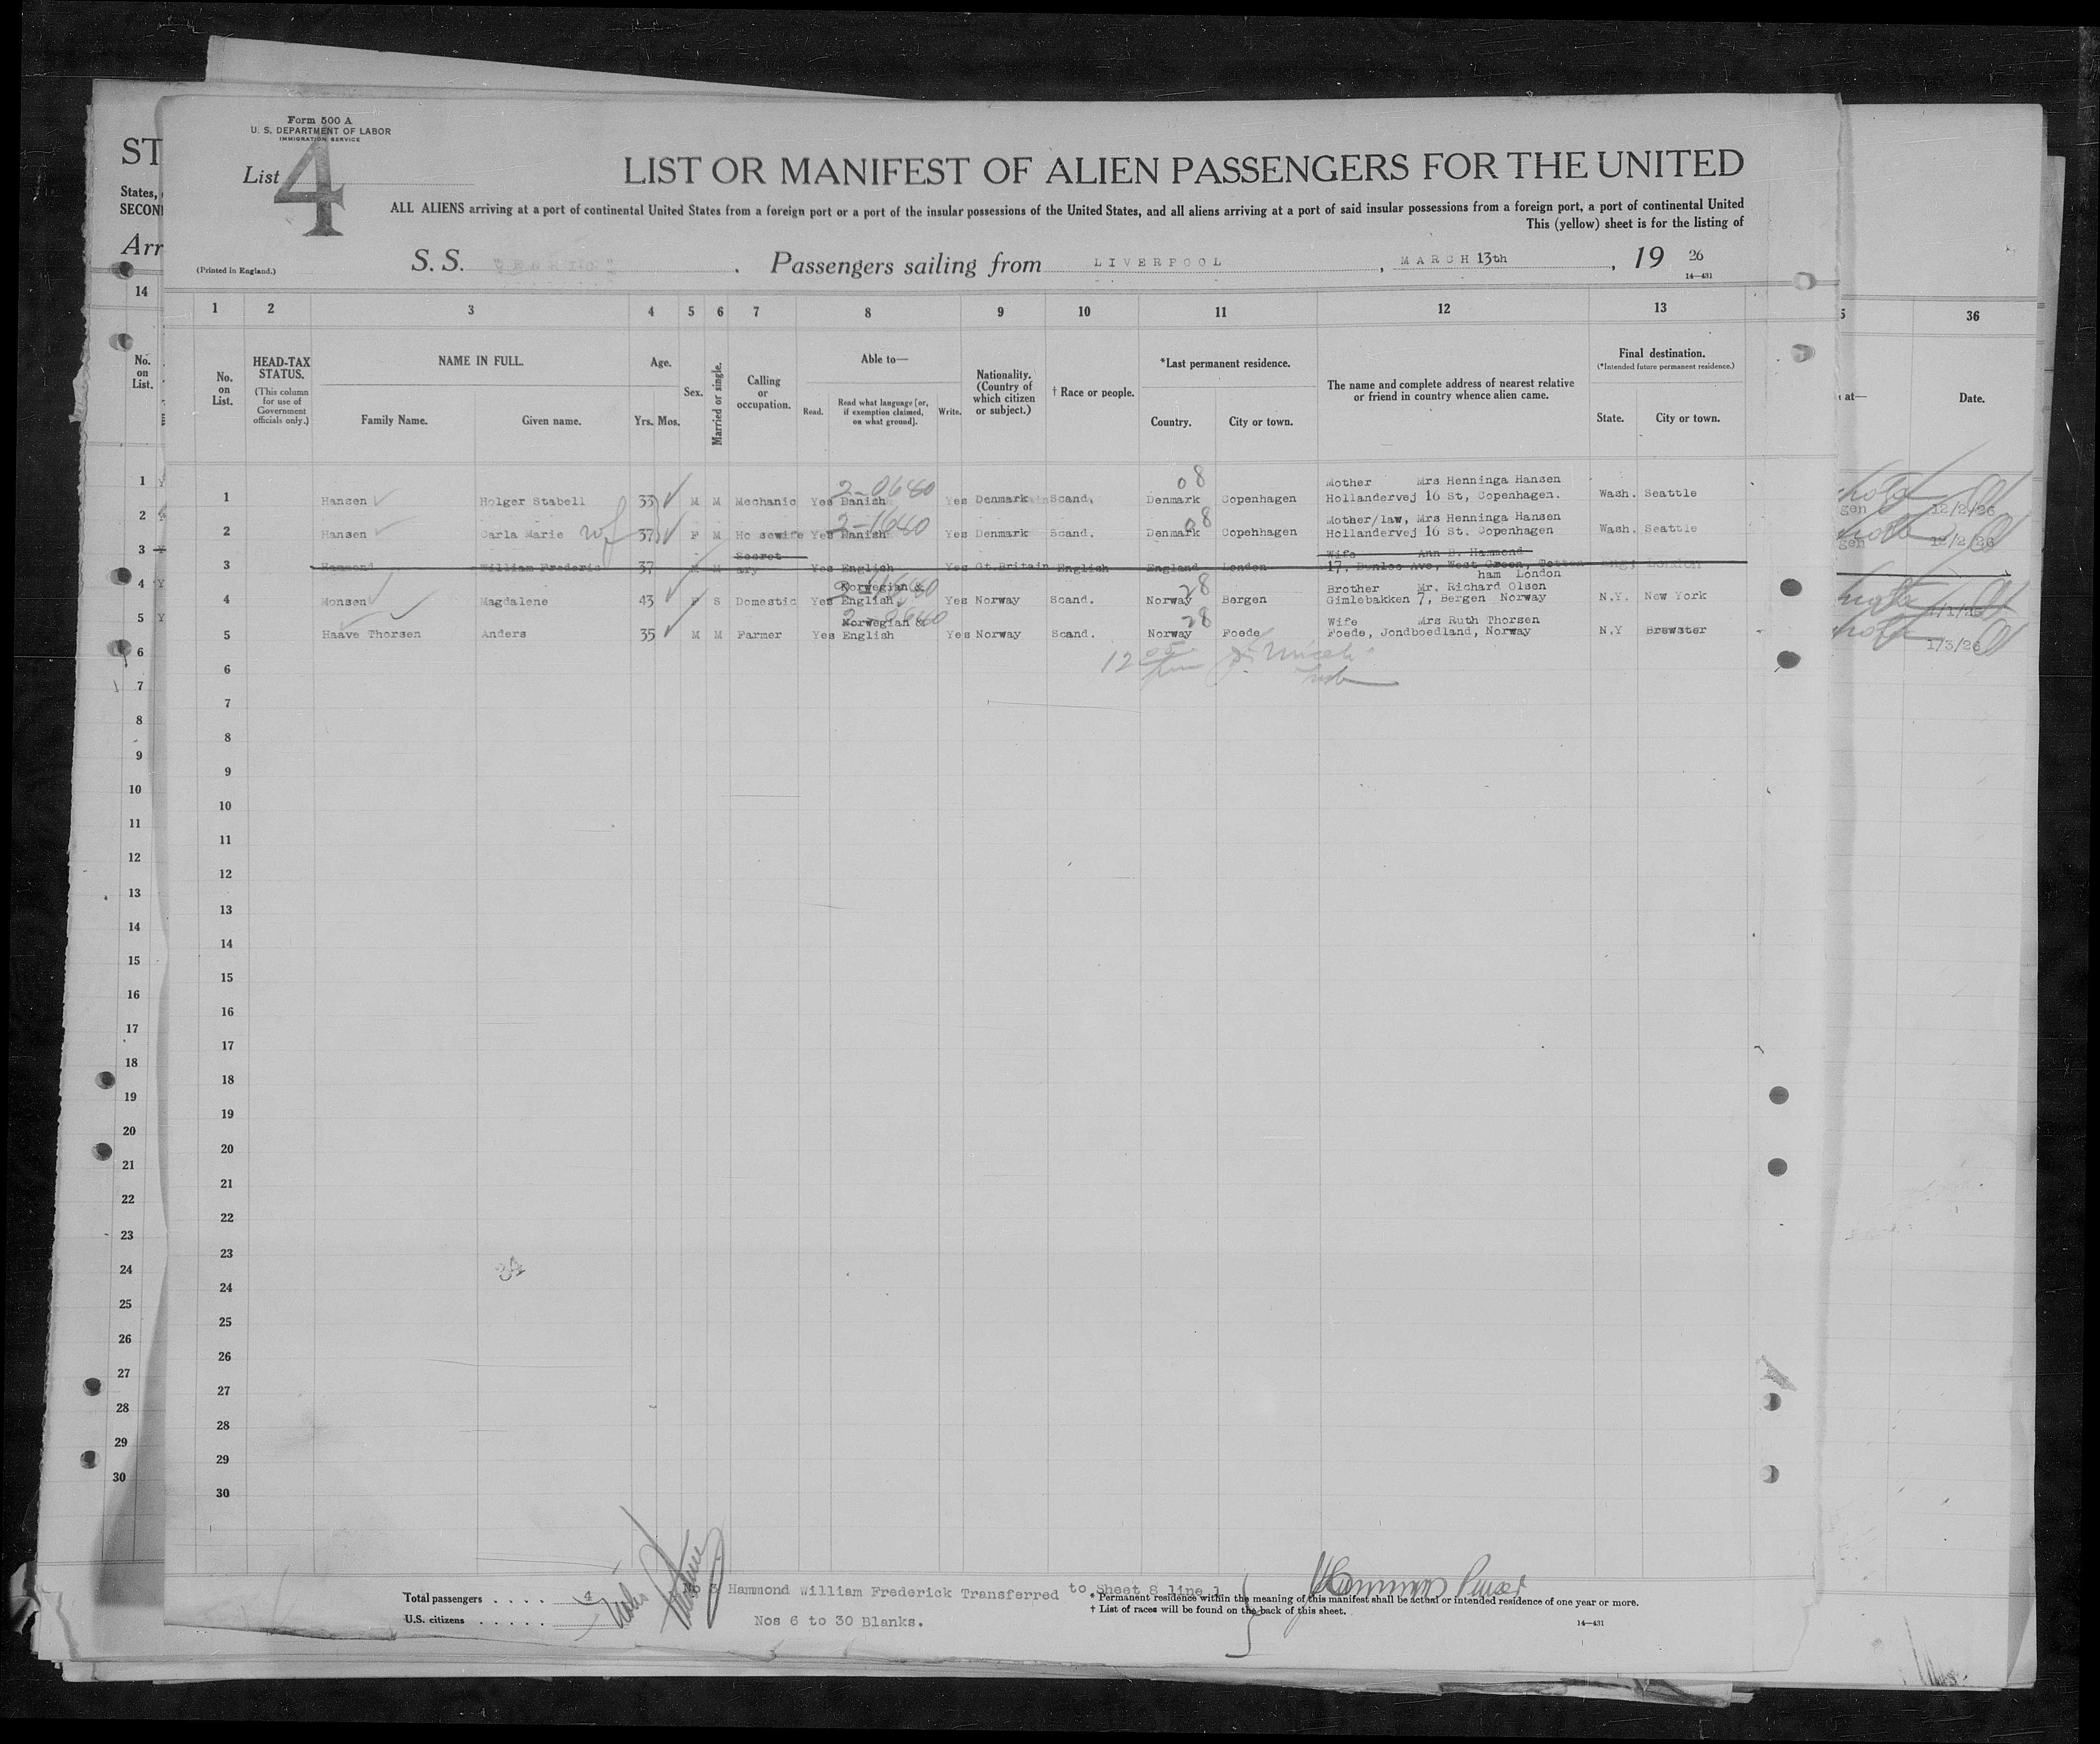 Form 500 A
U. S. DEPARTMENT OF LABOR
IMMIGRATION SERVICE
List 4
LIST OR MANIFEST OF ALIEN PASSENGERS FOR THE UNITED
ALL ALIENS arriving at a port of continental United States from a foreign port or a port of the insular possessions of the United States, and all aliens arriving at a port of said insular possessions from a foreign port, a port of continental United
This (yellow) sheet is for the listing of
(Printed in England.)
S. S. Passengers sailing from LIVERPOOL, MARCH 13th, 19 26
14—431
1 2 3 4 5 6 7 8 9 10 11 12 13
No. on List.
HEAD-TAX STATUS.
(This column for use of Government officials only.)
NAME IN FULL.
Family Name. Given name.
Age.
Yrs. Mos.
Sex.
Married or single.
Calling or occupation.
Able to—
Read. Read what language [or, if exemption claimed, on what ground]. Write.
Nationality. (Country of which citizen or subject.)
† Race or people.
*Last permanent residence.
Country. City or town.
The name and complete address of nearest relative or friend in country whence alien came.
Final destination.
(*Intended future permanent residence.)
State. City or town.
2-0640 08 Mother Mrs Henninga Hansen
1 Hansen Holger Stabell 33 M M Mechanic Yes Danish Yes Denmark Scand. Denmark Copenhagen Hollandervej 16 St, Copenhagen. Wash. Seattle
2-1640 08 Mother/law, Mrs Henninga Hansen
2 Hansen Carla Marie wf 37 F M Ho sewife Yes Danish Yes Denmark Scand. Denmark Copehhagen Hollandervej 16 St. Copenhagen Wash. Seattle
Secret Wife Ann B. Hammond
3 Hammond William Frederic 37 M M ary Yes English Yes Gt.Britain English England London 17, Dunloe Ave, West Green, Totten Eng; London
ham London
Norwegian & 28 Brother Mr. Richard Olsen
4 Monsen Magdalene 43 F S Domestic Yes English. Yes Norway Scand. Norway Bergen Gimlebakken 7, Bergen Norway N.Y. New York
Norwegian & 28 Wife Mrs Ruth Thorsen
5 Haave Thorsen Anders 35 M M Farmer Yes English Yes Norway Scand. Norway Foede Foede, Jondboedland, Norway N.Y Brewster
6
7
8
9
10
11
12
13
14
15
16
17
18
19
20
21
22
23
24
25
26
27
28
29
30
Total passengers . . . . 4
U.S. citizens . . . . .
No 3 Hammond William Frederick Transferred to Sheet 8 line 1
Nos 6 to 30 Blanks.
Purser
* Permanent residence within the meaning of this manifest shall be actual or intended residence of one year or more.
† List of races will be found on the back of this sheet.
14—431
ST
States,
SECON
Arr
14
No. on List.
1
2
3
4
5
6
7
8
9
10
11
12
13
14
15
16
17
18
19
20
21
22
23
24
25
26
27
28
29
30
36
at— Date.
gen 12/2/26
gen 12/2/26
1/3/26